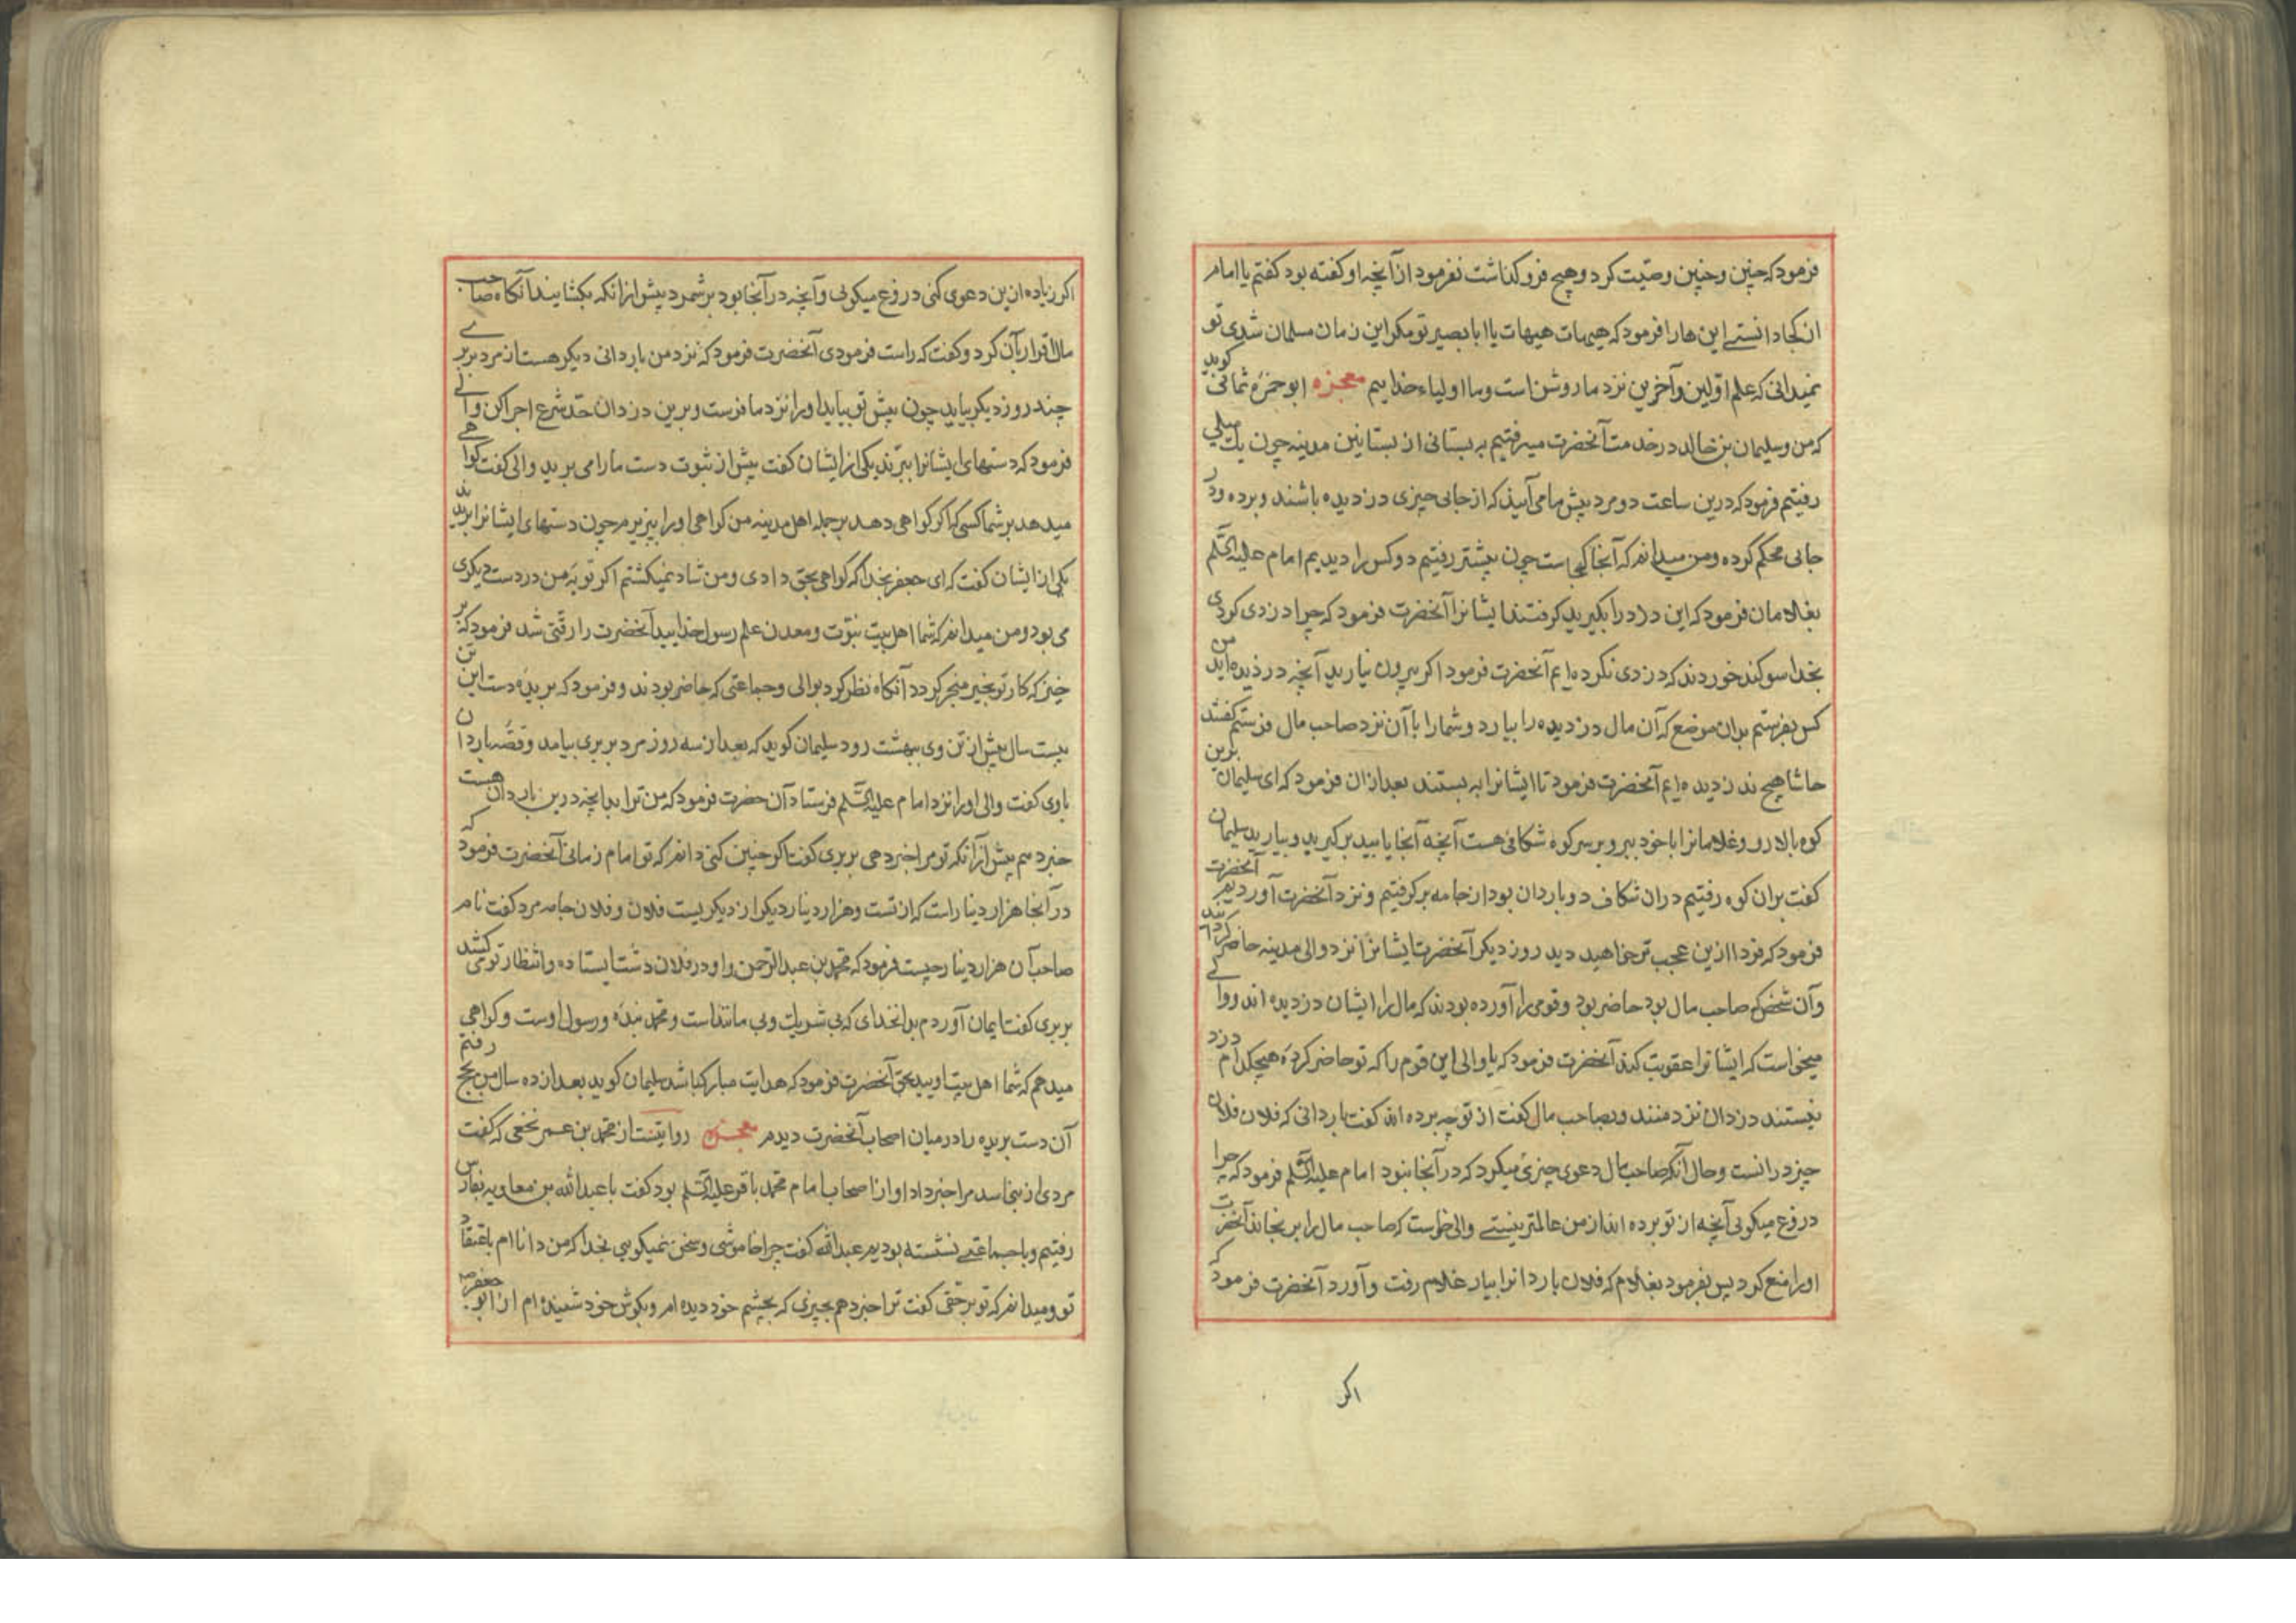 فرمود که چنین و چنین وصیّت کرد و هیچ فرو نکذاشت نفرمود از آنچه او کفته بود کفتم یا امام
از کجا دانستے این هارا فرمود که هیهات هیهات یا ابا بصیر تو مکر این زمان مسلمان شدی تو
نمیدانی که علم اوّلین و آخرین نزد ما روشن است و ما اولیاء خداییم معجزه ابو حمزه ثمالی کوید
که من و سلیمان بن خالد در خدمت آنحضرت میرفتیم به بستانی از بساتین مدینه چون یک میلی
رفتیم فرمود که درین ساعت دو مرد پیش ما می آیند که از جایی چیزی دزدیده باشند و برده و در
جایی محکم کرده و من میدانم که آنجا کجاست چون پیشتر رفتیم دو کس را دیدیم امام علیه السّلم
بغلامان فرمود که این دزدرا بکیرید کرفتند ایشانرا آنحضرت فرمود که چرا دزدی کردی
بخدا سوکند خوردند که دزدی نکرده ایم آنحضرت فرمود اکر بیرون نیارید آنچه دزدیده اید من
کس بفرستم بدان موضع که آن مال دزدیده را بیارد و شمارا با آن نزد صاحب مال فرستم کفتند
حاشا هیچ ندزدیده ایم آنحضرت فرمود تا ایشانرا به بستند بعد ازان فرمود که ای سلیمان برین
کوه بالا رو و غلامانرا با خود ببر و بر سر کوه شکافی هست آنچه آنجا یابید برکیرید و بیارید سلیمان
کفت بران کوه رفتیم دران شکاف دو باردان بود از جامه برکرفتیم و نزد آنحضرت آوردیم آنحضرت
فرمود که فردا ازین عجب تر خواهید دید روز دیکر آنحضرت ایشانرا نزد والی مدینه حاضر کردند
و آن شخص که صاحب مال بود حاضر بود و قومی را آورده بودند که مال را ایشان دزدیده اند و والے
میخواست که ایشانرا عقوبت کند آنحضرت فرمود که یا والی این قوم را که تو حاضر کردهٔ هیچکدام دزد
نیستند دزدان نزد منند و بصاحب مال کفت از تو چه برده اند کفت باردانی که فلان فلان
چیز درانست و حال آنکه صاحب مال دعوی چیزی میکرد که در آنجا نبود امام علیه السّلم فرمود که چرا
دروغ میکویی آنچه از تو برده اند از من عالمتر نیستے والی خواست که صاحب مال را برنجاند آنحضرت
اورا منع کرد پس بفرمود بغلام که فلان باردانرا بیار غلام رفت و آورد آنحضرت فرمود که
اکر
اکر زیاده ازین دعوی کنی دروغ میکویی و آنچه در آنجا بود برشمرد پیش ازانکه بکشایند آنکاه صاحب
مال اقرار بآن کرد و کفت که راست فرمودی آنحضرت فرمود که نزد من باردانی دیکر هست از مرد بربرے
چند روز دیکر بیاید چون پیش تو بیاید اورا نزد ما فرست و برین دزدان حدّ شرع اجرا کن والے
فرمود که دستهای ایشانرا ببرّند یکی از ایشان کفت پیش از ثبوت دست مارا می برید والی کفت کواهے
میدهد بر شما کسی که اکر کواهی دهد بر جمله اهل مدینه من کواهی اورا بپذیرم چون دستهای ایشانرا بریدند
یکی از ایشان کفت که ای جعفر بخدا که کواهی بحق دادی و من شاد نمیکشتم اکر توبهٔ من در دست دیکری
می بود و من میدانم که شما اهل بیت نبوّت و معدن علم رسول خدایید آنحضرت را رقّتی شد فرمود که بر
خیز که کار تو بخیر منجر کردد آنکاه نظر کرد بوالی و جماعتی که حاضر بودند و فرمود که بریده دست این
بیست سال پیش از تن وی ببهشت رود سلیمان کوید که بعد از سه روز مرد بربری بیامد و قصّه باردان
باوی کفت والی اورا نزد امام علیه السّلم فرستاد آن حضرت فرمود که من ترا بدانچه درین باردان هست
خبر دهم پیش ازانکه تو مرا خبر دهی بربری کفت اکر چنین کنی دانم که تو امام زمانی آنحضرت فرمود که
در آنجا هزار دینار است که از تست و هزار دینار دیکر از دیکریست فلان و فلان جامه مرد کفت نام
صاحب آن هزار دینار چیست فرمود که محمّد بن عبد الرّحمن و او در فلان دشت ایستاده و انتظار تو می کشد
بربری کفت ایمان آوردم بدانخدای که بی شریک و بی مانند است و محمّد بنده و رسول اوست و کواهی
میدهم که شما اهل بیت اویید بحق آنحضرت فرمود که هدایت مبارکباشد سلیمان کوید بعد از ده سال من بحج رفتم
آن دست بریده را در میان اصحاب آنحضرت دیدم معجزه روایتست از محمّد بن عمر نخعی که کفت
مردی از بنی اسد مرا خبر داد او از اصحاب امام محمّد باقر علیه السّلم بود کفت با عبد الله بن معاویه بفارس
رفتیم و با جماعتے نشسته بودیم عبد الله کفت چرا خاموشی و سخن نمیکویی بخدا که من دانا ام باعتقاد
تو و میدانم که تو بر حقی کفت ترا خبر دهم بچیزی که بچشم خود دیده ام و بکوش خود شنیده ام از ابو جعفر